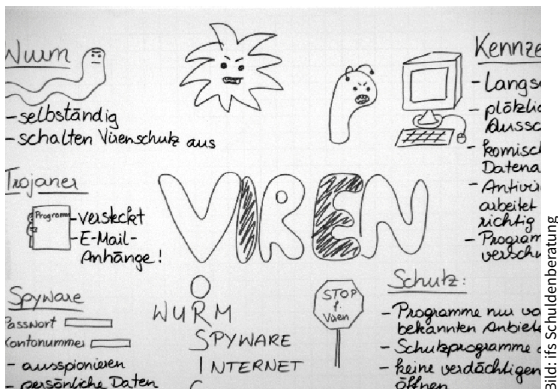 Wurm
- selbständig
- schalten Virenschutz aus
Trojaner
Programm
- versteckt
- E-Mail-
Anhänge!
Spyware
Passwort
Kontonummer
- ausspionieren
- persönliche Daten
VIREN
O
WURM
SPYWARE
INTERNET
STOP
f.
Viren
Kennze
- Langs
- plötzlic
Aussc
- komisch
Datena
- Antivir
arbeitet
richtig
- Program
verschw
Schutz:
- Programme nur vo
bekannten Anbiete
- Schutzprogramme
- keine verdächtigen
öffnen
ild: ifs Schuldenberatung